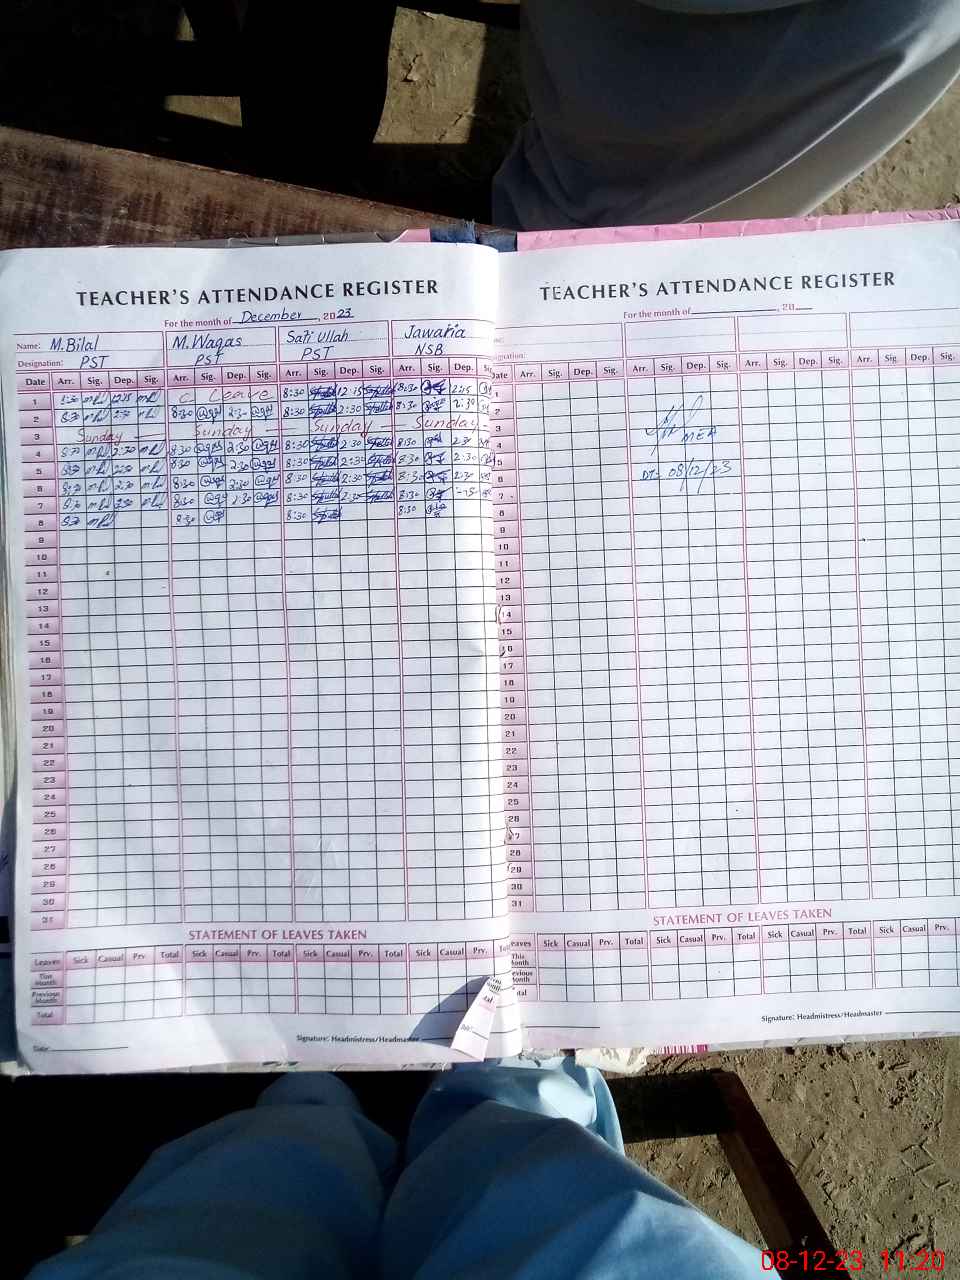 TEACHER'S ATTENDANCE REGISTER
For the month of December, 2023
Name: M.Bilal M.Waqas Safi Ullah Jawaria
Designation: PST PST PST NSB
Date Arr. Sig. Dep. Sig. Arr. Sig. Dep. Sig. Arr. Sig. Dep. Sig. Arr. Sig. Dep.
1 8:30 12:15 C. Leave 8:30 12:15 8:30 2:45
2 8:30 2:30 8:30 2:30 8:30 2:30 8:30 2:30
3 Sunday Sunday Sunday Sunday
4 8:30 2:30 8:30 2:30 8:30 2:30 8:30 2:30
5 8:30 2:30 8:30 2:30 8:30 2:30 8:30 2:30
6 8:30 2:30 8:30 2:30 8:30 2:30 8:30 2:30
7 8:30 2:30 8:30 2:30 8:30 2:30 8:30
8 8:30 8:30 8:30 8:30
9
10
11
12
13
14
15
16
17
18
19
20
21
22
23
24
25
26
27
28
29
30
31
STATEMENT OF LEAVES TAKEN
Leaves Sick Casual Prv. Total Sick Casual Prv. Total Sick Casual Prv. Total Sick Casual Prv.
This Month
Previous Month
Total
Date: Signature: Headmistress/Headmaster
TEACHER'S ATTENDANCE REGISTER
For the month of , 20
Date Arr. Sig. Dep. Sig. Arr. Sig. Dep. Sig. Arr. Sig. Dep. Sig. Arr. Sig. Dep. Sig.
1
2
3
MEA
4
5
DT: 08/12/23
6
7
8
9
10
11
12
13
14
15
16
17
18
19
20
21
22
23
24
25
26
27
28
29
30
31
STATEMENT OF LEAVES TAKEN
Leaves Sick Casual Prv. Total Sick Casual Prv. Total Sick Casual Prv. Total Sick Casual
This Month
Previous Month
Total
Signature: Headmistress/Headmaster
08-12-23 11:20